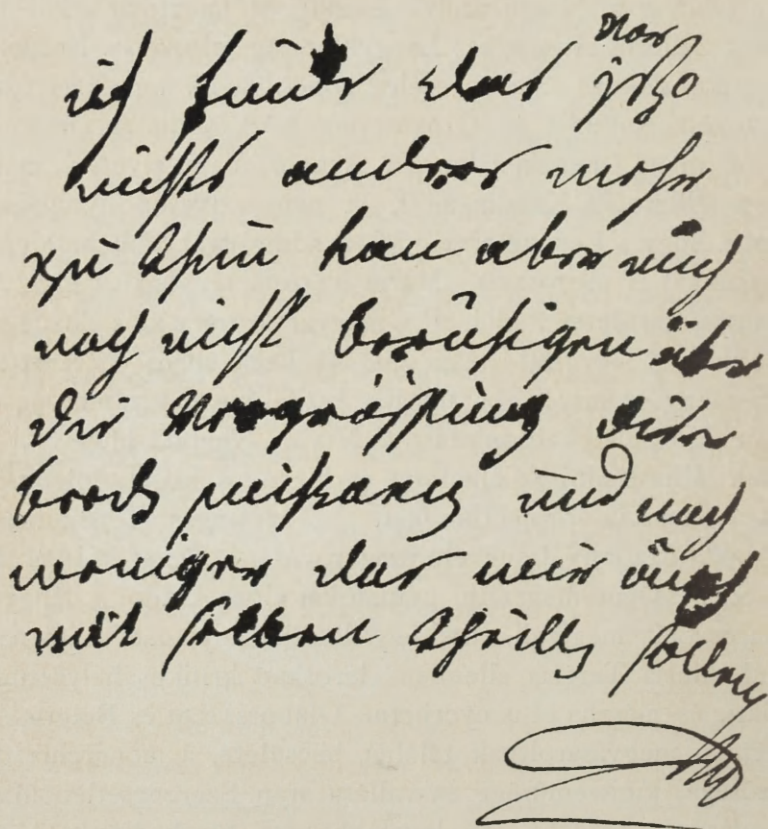 vor
ich finde das jezo
nichts anderes mehr
zu thun kan aber mich
noch nicht beruhigen über
die Vergrösserung diser
beeden und noch
weniger das wir auch
mit selben theillen sollen